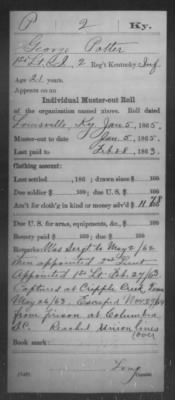 P 2 Ky.
George Potter
1st Lt, Co. I, 2 Reg't Kentucky Inf.
Age 21 years.
Appears on an
Individual Muster-out Roll
of the organization named above. Roll dated
Louisville, Ky Jan 5, 1865.
Muster-out to date Jan 5, 1865.
Last paid to Feb 28, 1863.
Clothing account:
Last settled , 186 ; drawn since $
Due soldier $ 100; due U. S. $ 100
Am't for cloth'g in kind or money adv'd $ 11 68
Due U. S. for arms, equipments, &c., $ 100
Bounty paid $ 100; due $ 100
Remarks: Was Sergt to May 2/62
then appointed 2nd Lieut
Appointed 1st Lt Feb 27/63.
Captured at Cripple Creek, Tenn
May 16/63. Escaped Nov 29/64
from prison at Columbia
S.C. Reached Union lines
(over)
Book mark:
(347)
Copyist.